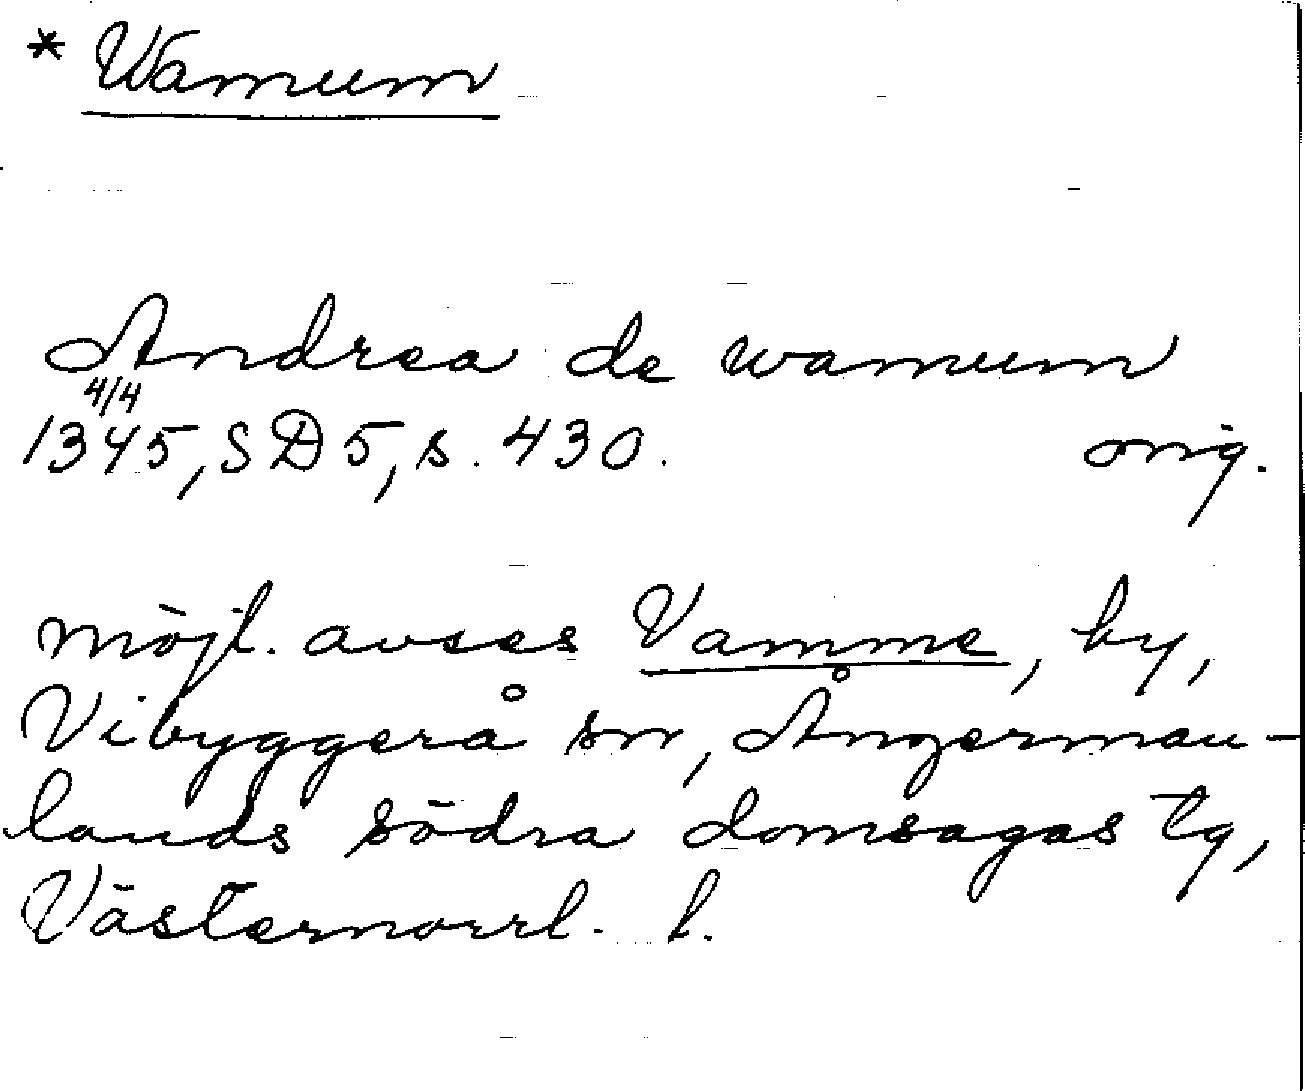 * Wamum
Andrea de wamum
4/4
1345, SD 5, s. 430. orig.
möjl. avses Vamme, by,
Vibyggerå sn, Ångerman-
lands södra domsagas tg,
Västernorrl. l.